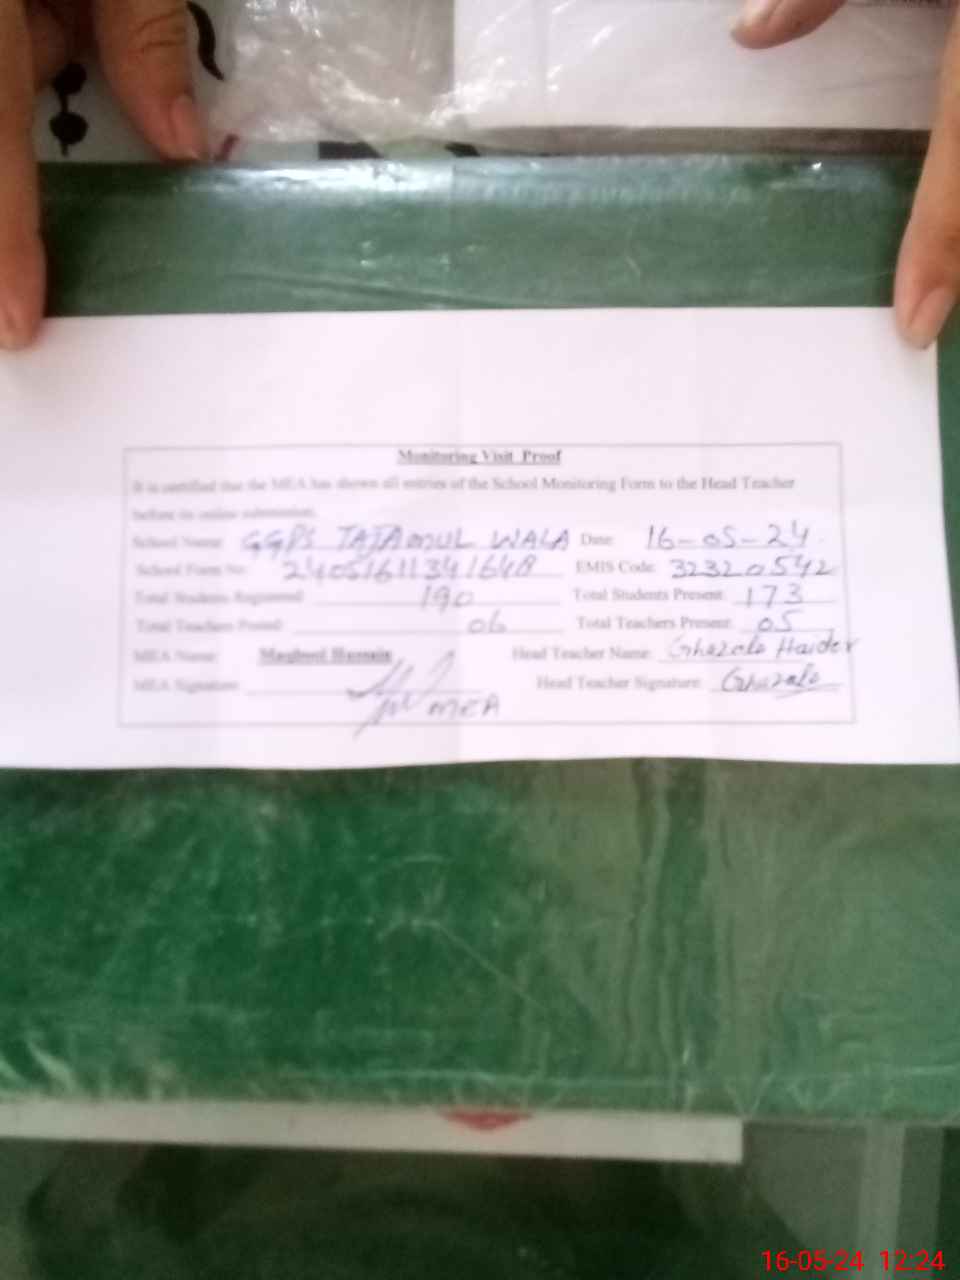 Monitoring Visit Proof
It is certified that the MEA has shown all entries of the School Monitoring Form to the Head Teacher
before its online submission.
School Name: GGPS TAJAMUL WALA Date: 16-05-24
School Form No: 24051611341648 EMIS Code: 32320542
Total Students Registered: 190 Total Students Present: 173
Total Teachers Posted: 06 Total Teachers Present: 05
MEA Name: Maqbool Hussain Head Teacher Name: Ghazala Haider
MEA Signature: Head Teacher Signature: Ghazala
MEA
16-05-24 12:24